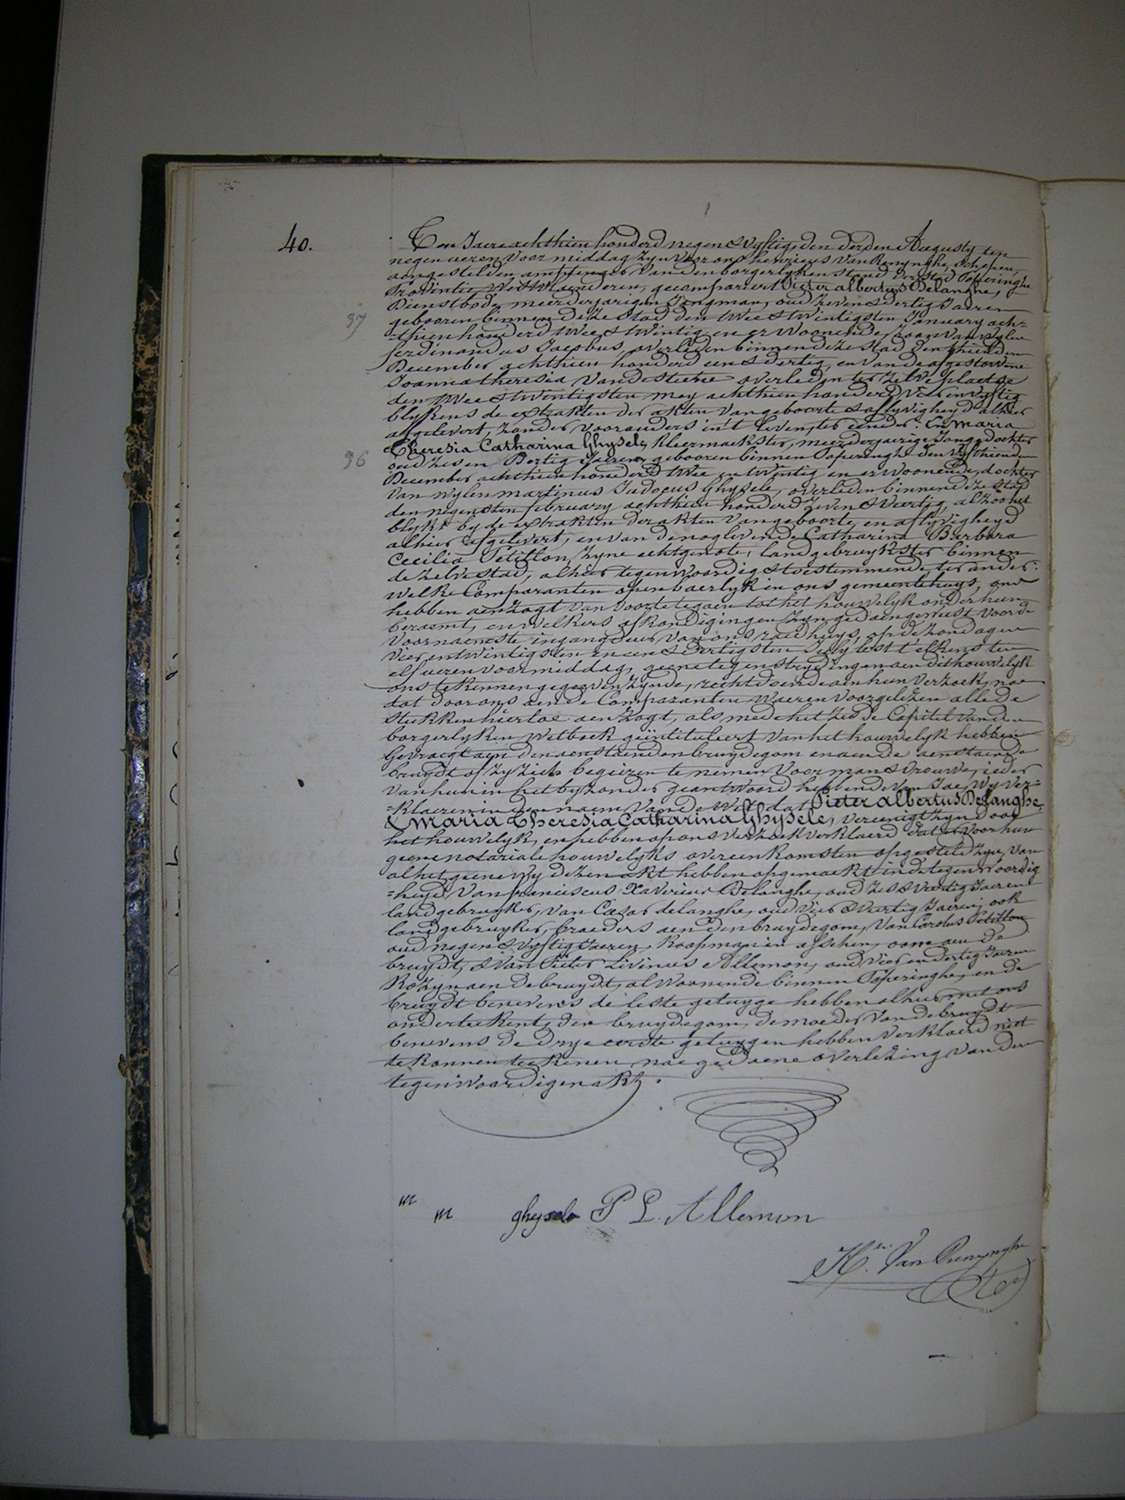 40.
Ten Jaere achthien honderd negen & vyftig, den derden Augusty, ten
negen ueren voormiddag zyn voor ons henricus Van Renynghe, schepen,
aengestelden ampténaer van den borgerlyken stand der stad Poperinghe
Provintie West Vlaenderen, gecompareert Pieter Albertus Delanghe,
Dienstbode, meerderjarigen Jongman, oud zeven & dertig Jaeren
37
gebooren binnen deze stad den twee & twintigsten January ach-
thien honderd twee & twintig en er woonende, zoon van wylen
ferdinandus Jacobus, overleden binnen deze stad den thienden
December achthien honderd een & dertig, en van de afgestorvene
Joanna theresia Vandesteene overleden ter zelve plaetse
den twee & twintigsten mey achthien honderd vier en vyftig
blykens de extrakten der akten van geboorte & aflyvigheyd alhier
afgelevert, zonder voorouders int leven, ter eender: En Maria
Theresia Catharina Ghysele, kleermaekster, meerderjarige Jonge dochter
96
oud zes en Dertig Jaeren gebooren binnen Poperinghe den vyfthienden
December achthien honderd twee en twintig en er woonende, dochter
van wylen martinus Judocus Ghysele, overleden binnen deze stad
den negensten february achthien honderd zeven & veertig, al zoo het
blykt by de extrakten der akten van geboorte en aflyvigheyd
alhier afgelevert, en van de nog levende Catharina Barbara
Cecilia Petitton, zyne echtgenote, landgebruykster binnen
de zelve stad, alhier tegenwoordig & toestemmende, ter ander:
Welke Comparanten openbaerlyk in ons gemeentehuys, ons
hebben aenzogt van voorts te gaen tot het houwelyk onder hun
beraemt, en welkers afkondigingen zyn gedaen geweest voor de
voornaemste ingangdeur van ons raedhuys, op de zondagen
vier en twintigsten en een & dertigsten July lest t'elkens ten
elf ueren voormiddag, geene tegenstrydingen aen dit houwelyk
ons te kennen gegeven zynde, recht doende aen hun verzoek, nae
dat door ons aen de Comparanten waeren voorgelezen alle de
stukken hiertoe aenzogt, als mede het zesde Capitel van den
borgerlyken Wetboek geïntituleert van het houwelyk hebben
gevraegt aen den aenstaenden bruydegom en aen de aenstaende
bruydt of zy zich begeiren te nemen voor man & vrouwe, ieder
van hun in het byzonder geantwoord hebbende van Jae, Wy ver-
=klaeren in den naem van de Wet dat Pieter Albertus Delanghe,
& Maria Theresia Catharina Ghysele, vereenigt zyn door
het houwelyk, en hebben op ons verzoek verklaerd dat er voor hun
geene notariale houwelyks overeenkomsten opgesteld zyn, van
al het geene wy dezen akt hebben opgemaekt in de tegenwoordig
=heyd van franciscus Xaverius Delanghe, oud zes & veertig Jaeren
landgebruyker, van Cæsar delanghe, oud vier & veertig Jaeren, ook
landgebruyker, broeders aen den bruydegom, van Carolus Petitton
oud negen & vyftig Jaeren, koopman in asschen, oom aen de
bruydt, & van Pieter Livinus Allemon, oud vier en dertig Jaeren
Kozyn aen de bruydt, al woonende binnen Poperinghe, en de
bruydt benevens de leste getuyge hebben alhier met ons
onderteekent, den bruydegom, de moeder van de bruydt
benevens de drye eerste getuygen hebben verklaerd niet
te konnen teekenen, nae gedaene overlezing van den
tegenwoordigen akt.
m m ghysele P L. Allemon
H.ri Van Renynghe